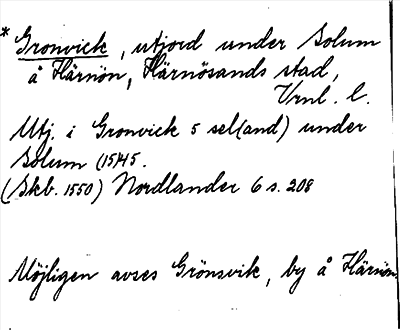 * Gronvick, utjord under Solum
å Härnön, Härnösands stad,
Vrnl. l.
Utj. i Gronvick 5 sel(and) under
Solum (15)45.
(Skb. 1550) Nordlander 6 s. 208
Möjligen avses Grönsvik, by å Härnön